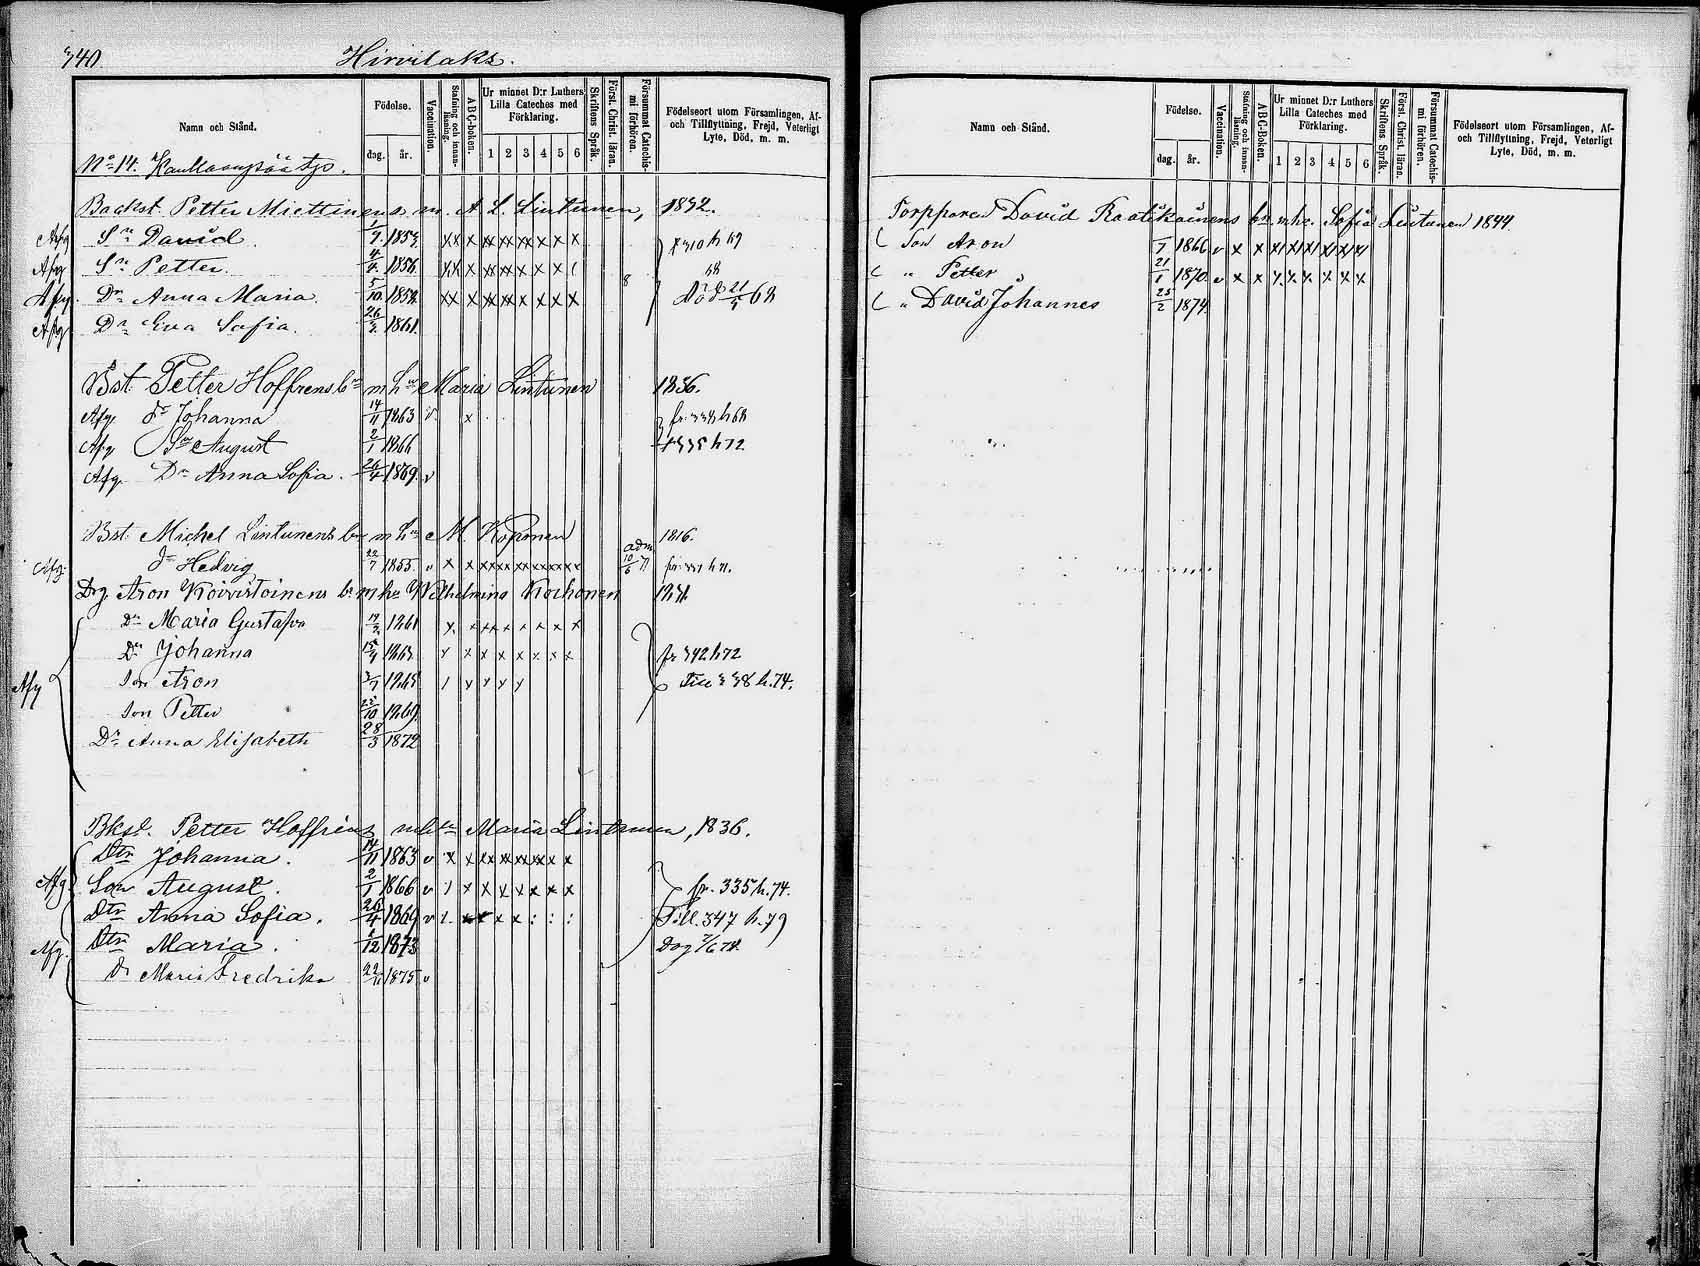 340.
Hirvilaks.
Namn och Stånd.
Födelse.
dag.
år.
Vaccination.
Stafning och innan-läsning.
ABC-boken.
Ur minnet D:r Luthers Lilla Cateches med Förklaring.
1 2 3 4 5 6
Skriftens Språk.
Först. Christ. läran.
Försummat Catechis-mi förhören.
Födelseort utom Församlingen, Af- och Tillflyttning, Frejd, Veterligt Lyte, Död, m. m.
No 14.
Backst. Petter Miettinens m. A L. Lintunen, 1832.
Afg Sn David. 1853
Afg Sn Petter. 4/4 1856
Afg. Dr Anna Maria. 5/10 1858 Död 21/5 68
Afg Dr Eva Sofia. 1861
Bst. Petter Hoffrens bn m hu Maria Lintunen 1836.
Afg. dr Johanna 14/11 1863 v x
Afg. Sn August 2/1 1866
Afg. Dr Anna Sofia. 26/4 1869. v
Bst. Michel Lintunens bn m hu M. Koponen 1816.
Afg. dr Hedvig 22/7 1855 v x x adm 10/6 71
Drg. Aron Koivistoinens bn m hu Vilhelmina Korhonen
Dr Maria Gustafva 1861
Dr Johanna
fr 342 h 72
Afg Son Aron 1865
Till 338 h. 74.
Son Petter 1869
Dr Anna Elisabeth 28/3 1872
Bkst. Petter Hoffrens m hu Maria Lintunen, 1836.
Dtr Johanna. 14/11 1863 v
Afg Son August. 2/1 1866 v fr. 335 h. 74.
Dtr Anna Sofia. 26/4 1869 v Till. 347 h. 79
Afg. Dtr Maria. 1/12 1873 Dog 7/6 74.
dr Maria Fredrika 22/11 1875 v
Namn och Stånd.
Födelse.
dag.
år.
Vaccination.
Stafning och innan-läsning.
ABC-Boken.
Ur minnet D:r Luthers Lilla Cateches med Förklaring.
1 2 3 4 5 6
Skriftens Språk.
Först. Christ. läran.
Försummat Catechis-mi förhören.
Födelseort utom Församlingen, Af- och Tillflyttning, Frejd, Veterligt Lyte, Död, m. m.
Torpparen David Raatikainens bn m hu. Sofia Lintunen 1844.
Son Aron 1/7 1866 v x x
" Petter 21/1 1870 v x x
" David Johannes 25/2 1874.